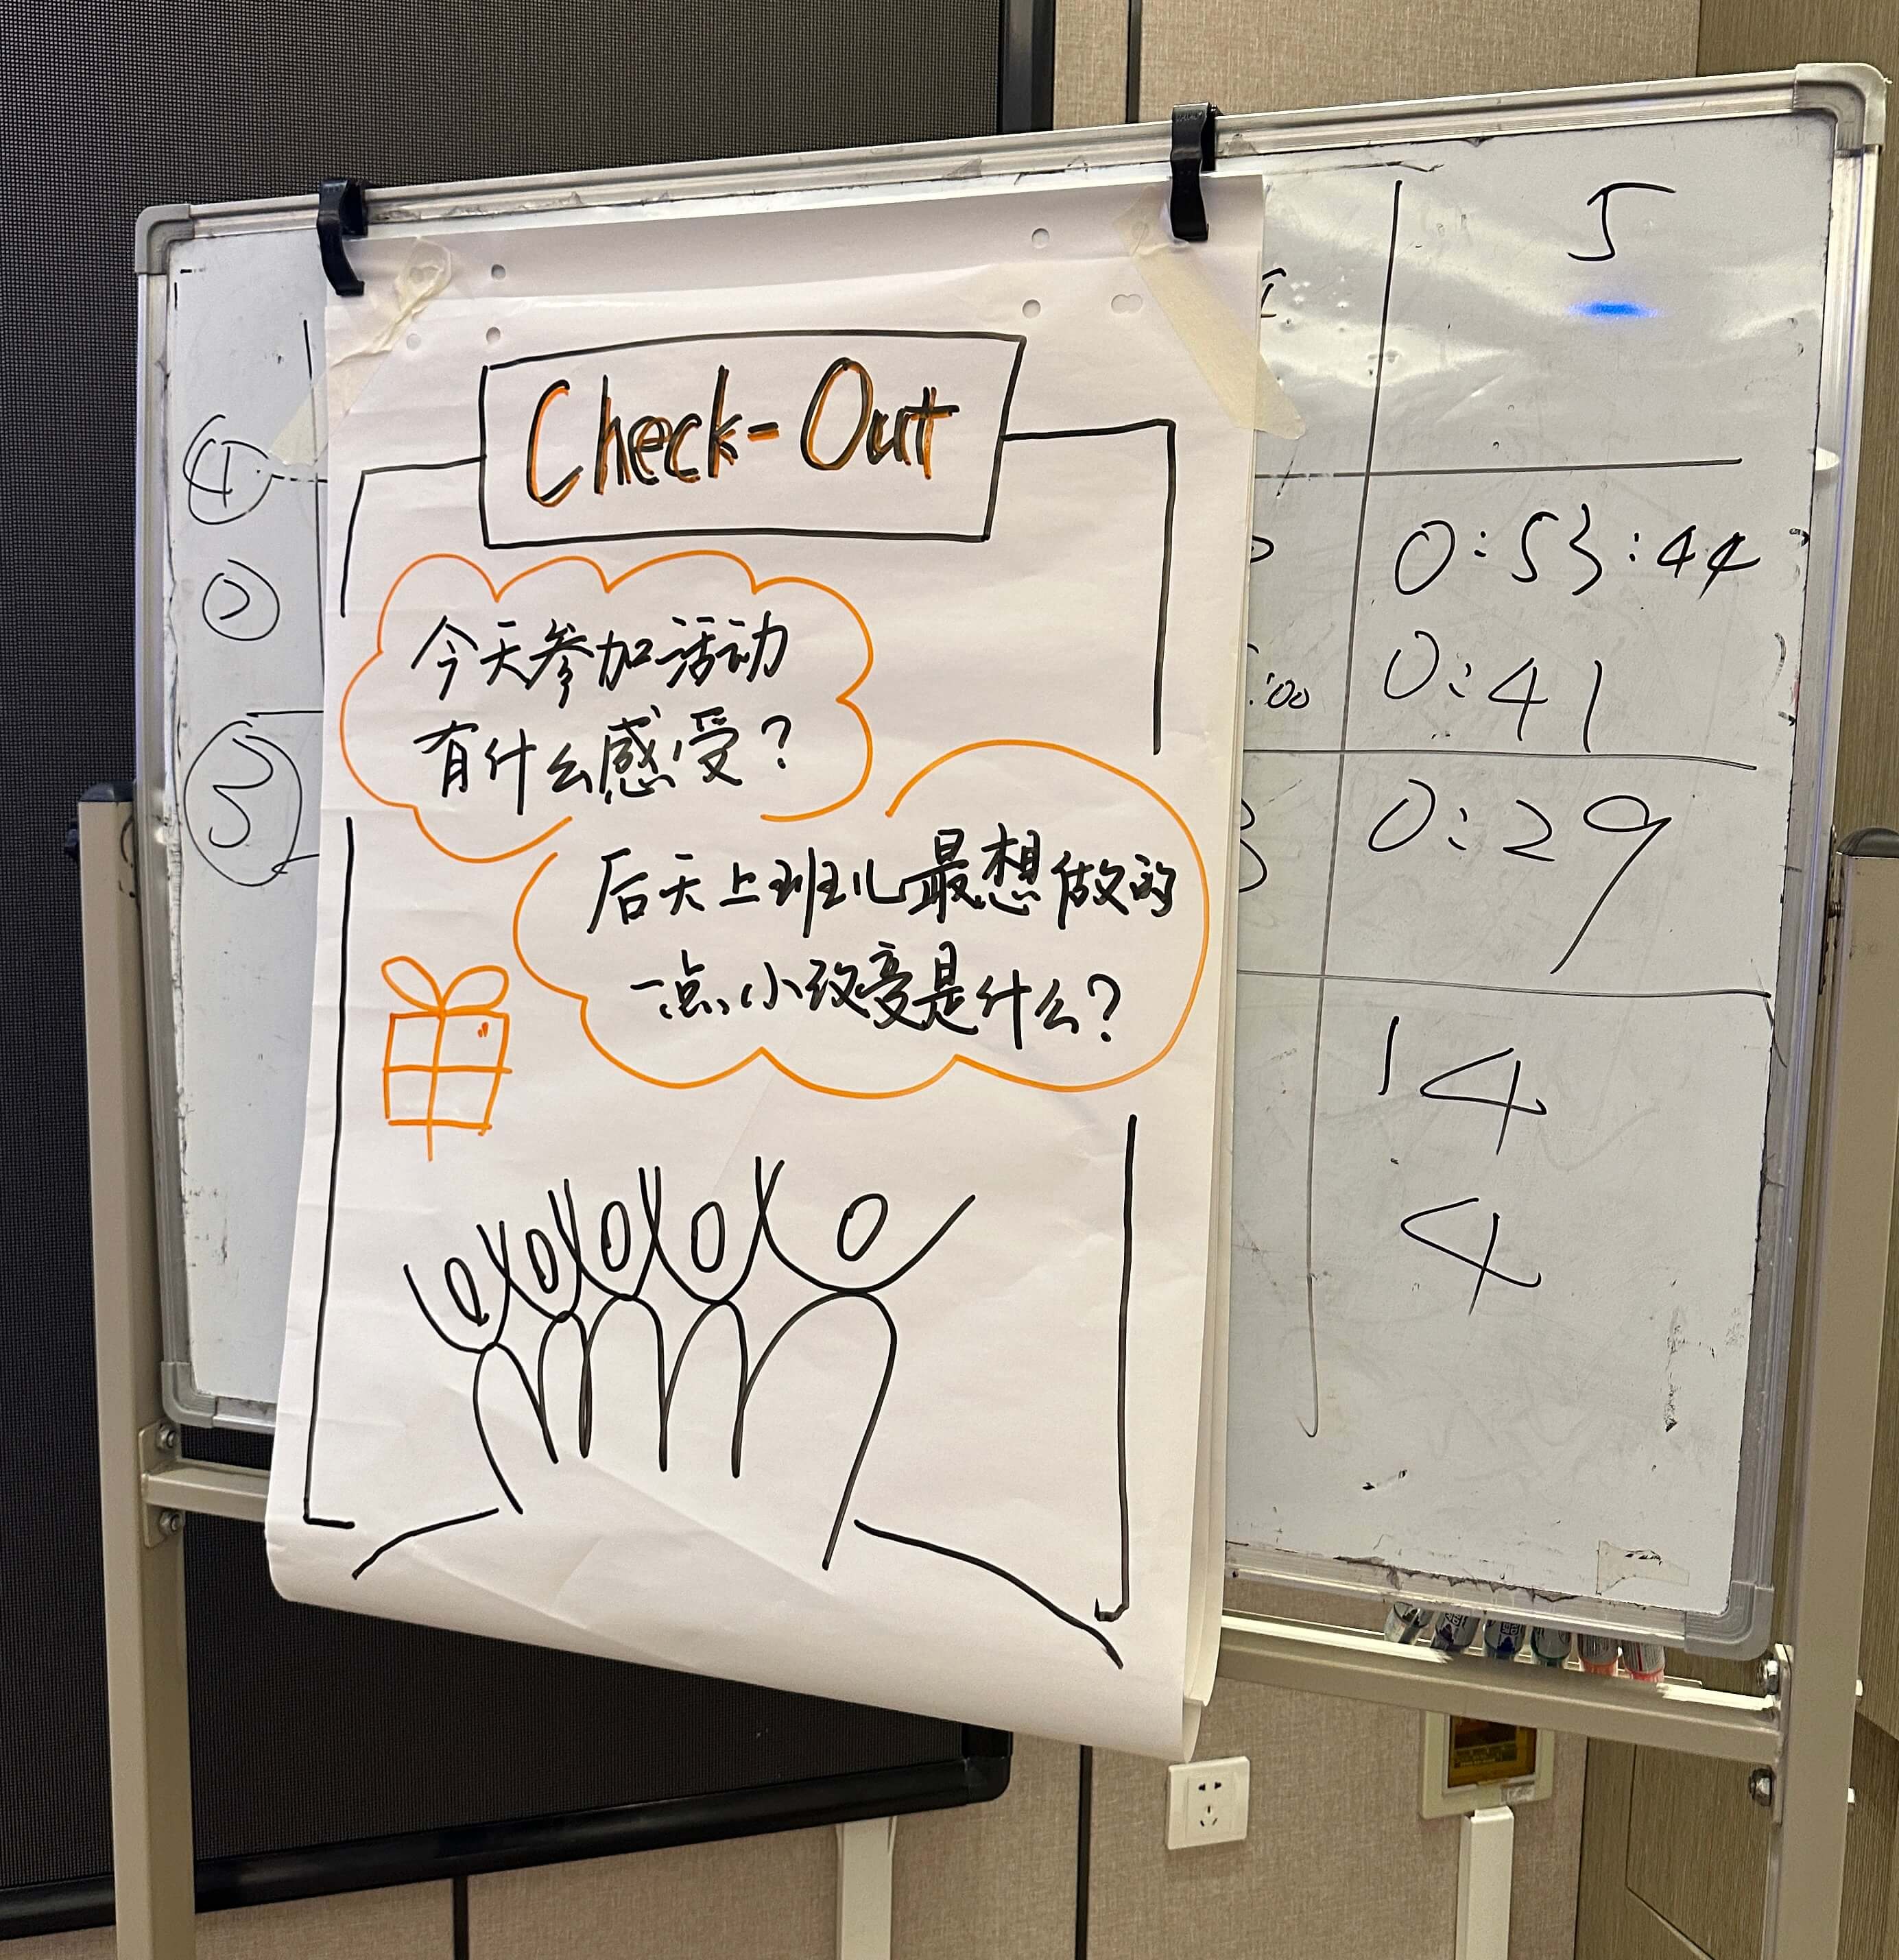 Check-Out
今天参加活动
有什么感受?
后天上班儿最想做的
一点小改变是什么?
①
②
③
5
0:53:44
:00
0:41
3
0:29
14
4